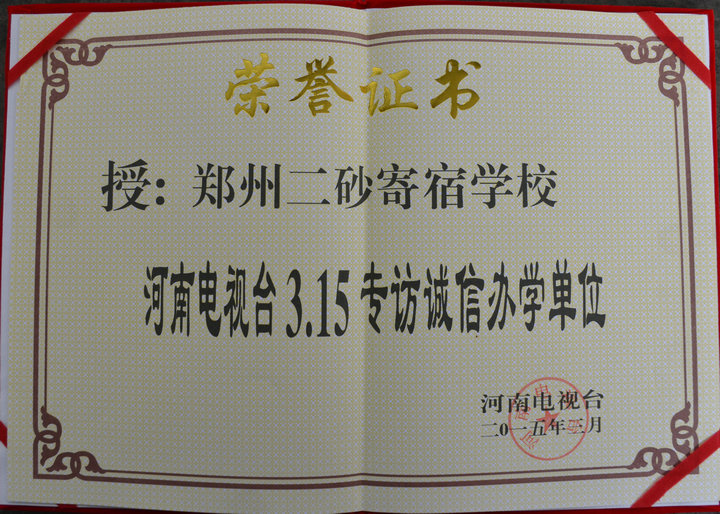 荣誉证书
授：郑州二砂寄宿学校
河南电视台3.15专访诚信办学单位
河南电视台
二0一五年三月
河南电视台